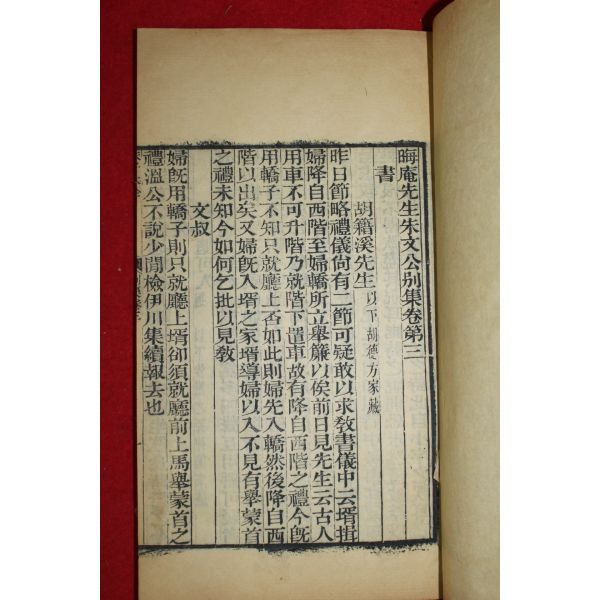 晦庵先生朱文公別集卷第三
書
胡籍溪先生以下胡德方家藏
昨日節略禮儀尚有二節可疑敢以求教書儀中云壻揖
婦降自西階至婦轎所立舉簾以俟前日見先生云古人
用車不可升階乃就階下置車故有降自西階之禮今旣
用轎子不知只就廳上否如此則婦先入轎然後降自西
階以出矣又婦旣入壻之家壻導婦以入不見有舉蒙首
之禮未知今如何乞批以見教
文叔
婦旣用轎子則只就廳上壻卻須就廳前上馬舉蒙首之
禮溫公不說少閒檢伊川集續報去也